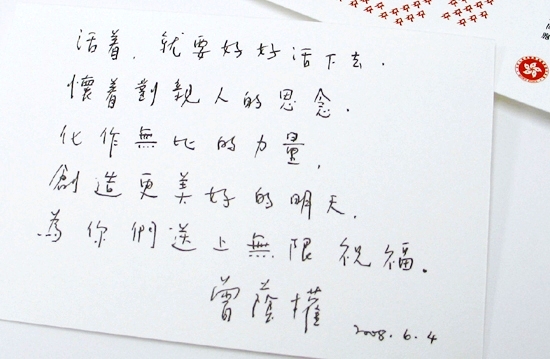 活着，就要好好活下去．
懷着對親人的思念．
化作無比的力量，
創造更美好的明天．
為你們送上無限祝福。
曾蔭權
2008.6.4